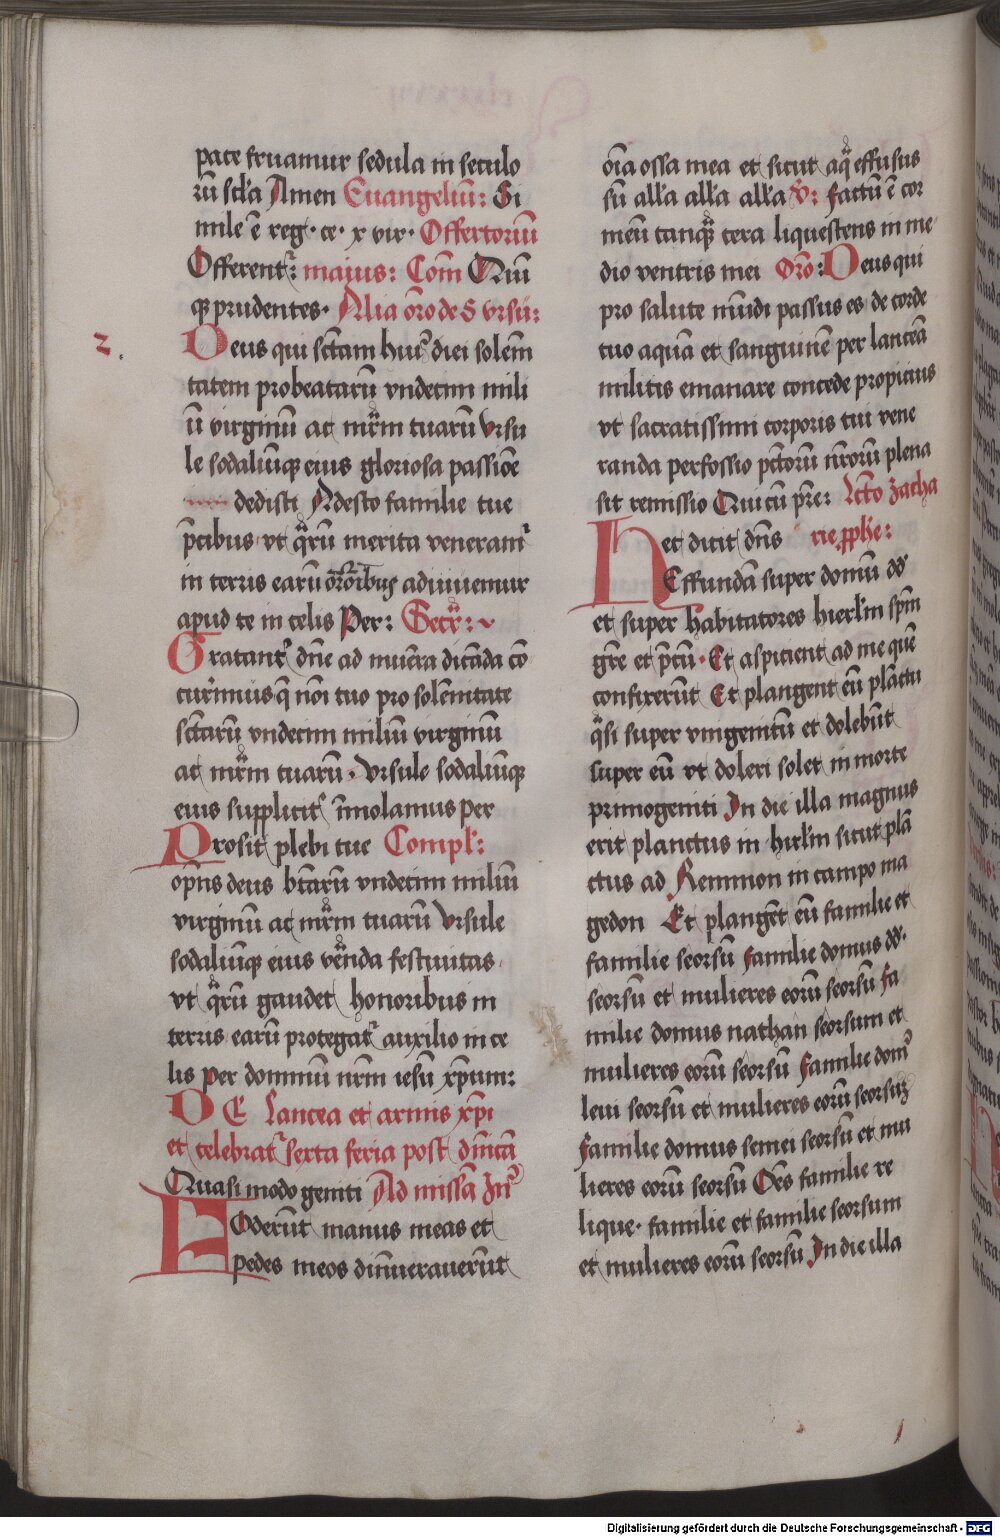 pace fruamur sedula in seculo
rū scl̄a Amen Euangeliū: Si
mile ē reg· ce· x vir· Offertoriū
Offerent᷑ maius: Com̄ Quī
qꝫ prudentes· Alia or̄o de S vrsū:
2.
Deus qui sc̄tam huiꝰ diei solem̄
tatem pro beatarū vndecim mili
ū virginū ac mr̄m tuarū vrsu
le sodaliūqꝫ eius gloriosa passiōe
dedisti Adesto familie tue
p̄cibus vt qͣrū merita veneramᷣ
in terris earū or̄oibus adiuuemur
apud te in celis Per: Secr̄:
Gratant᷑ dn̄e ad mun̄era dicāda cō
currimus q̄ nōi tuo pro solēnitate
sc̄tarū vndecim miliū virginū
ac mr̄m tuarū· vrsule sodaliūqꝫ
eius supplicit᷑ īmolamus per
Prosit plebi tue Compl̄:
op̄ns deus bt̄arū vndecim miliū
virginū ac mr̄m tuarū Vrsule
sodaliūqꝫ eius ven̄da festiuitas
vt qͣrū gaudet honoribus in
terris earū protegat᷑ auxilio in ce
lis per dominū nr̄m iesū xp̄um:
DE Lancea et armis xp̄i
et celebrat᷑ sexta feria post dn̄icā
Quasi modo geniti Ad missā Inꝰ
Foderūt manus meas et
pedes meos dinūerauerūt
oīa ossa mea et sicut aqͣ effusus
sū all̄a all̄a all̄a v̄: factū ē cor
meū tanqͣ cera liquescens in me
dio ventris mei Or̄o: Deus qui
pro salute mūdi passus es de corde
tuo aquā et sanguinē per lanceā
militis emanare concede propicius
vt sacratissimi corporis tui vene
randa perfossio pc̄torū nr̄orū plena
sit remissio Qui cū pr̄e: Lcto zacha
Hec dicit dn̄s rie ꝓph̄e:
Effundā super domū dd̄
et super habitatores hierl̄m spm̄
gr̄e et p̄cū· Et aspicient ad me quē
confixerūt Et plangent eū plāctu
qͣsi super vnigenitū et dolebūt
super eū vt doleri solet in morte
primogeniti In die illa magnus
erit planctus in hierl̄m sicut plā
ctus ad Remmon in campo ma
gedon Et plangēt eū familie et
familie seorsū familie domus dd̄·
seorsū et mulieres eorū seorsū fa
milie domus nathan seorsum et
mulieres eorū seorsū Familie domꝰ
leui seorsū et mulieres eorū seorsūꝫ
Familie domus semei seorsū et mu
lieres eorū seorsū Oēs familie re
lique· familie et familie seorsum
et mulieres eorū seorsū In die illa
Digitalisierung gefördert durch die Deutsche Forschungsgemeinschaft - DFG